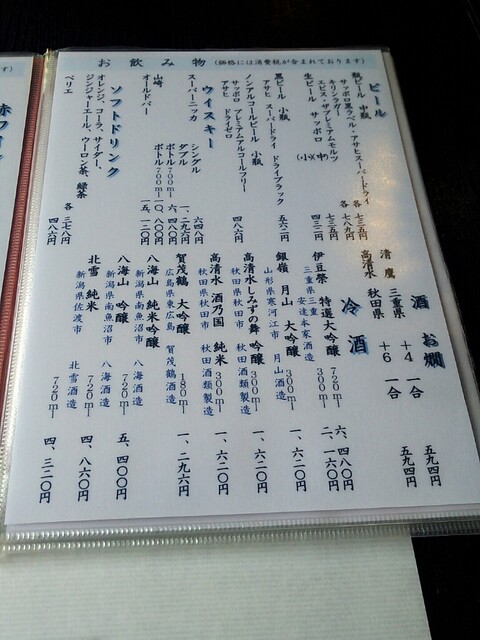 お飲み物 (価格には消費税が含まれております)
ビール
瓶ビール 中瓶
サッポロ黒ラベル・アサヒスーパードライ 各 七三五円
キリンラガー
エビス・ザプレミアムモルツ 各 七八九円
生ビール サッポロ (中) 七三五円
(小) 四三二円
黒ビール 小瓶
アサヒ スーパードライ ドライブラック 五六二円
ノンアルコールビール 小瓶
サッポロ プレミアムアルコールフリー
アサヒ ドライゼロ 四八六円
ウイスキー
スーパーニッカ シングル 六四八円
ダブル 一、二九六円
ボトル 700ml 六、四八〇円
山崎 ボトル 700ml 一〇、八〇〇円
オールドパー 一五、一二〇円
ソフトドリンク
オレンジ、コーラ、サイダー、
ジンジャーエール、ウーロン茶、緑茶 各 三七八円
ペリエ 四八六円
酒 お燗
清鷹 三重県 +4 一合 五九四円
高清水 秋田県 +6 一合 五九四円
冷酒
伊豆祭 特選大吟醸 720ml 六、四八〇円
三重県三重 安達本家酒造 300ml 二、一六〇円
銀嶺 月山 大吟醸 300ml 一、六二〇円
山形県寒河江市 月山酒造
高清水しみずの舞 吟醸 300ml 一、六二〇円
秋田県秋田市 秋田酒類製造
高清水 酒乃国 純米 300ml 一、六二〇円
秋田県秋田市 秋田酒類製造
賀茂鶴 大吟醸 180ml 一、二九六円
広島県東広島 賀茂鶴酒造
八海山 純米吟醸 720ml 五、四〇〇円
新潟県南魚沼市 八海酒造
八海山 吟醸 720ml 四、八六〇円
新潟県南魚沼市 八海酒造
北雪 純米 720ml 四、三二〇円
新潟県佐渡市 北雪酒造
す)